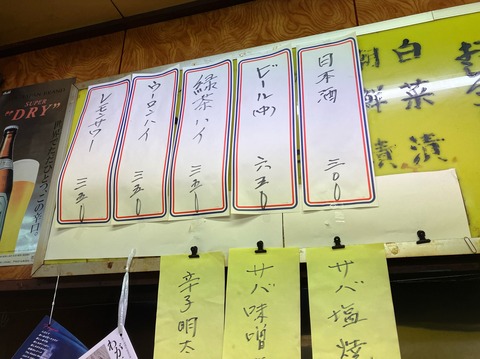 日本酒 三〇〇
ビール(中) 六五〇
緑茶ハイ 三五〇
ウーロンハイ 三五〇
レモンサワー 三五〇
白菜漬
サバ塩焼
サバ味噌
辛子明太
SUPER
"DRY"
世界でただひとつ、この辛口。